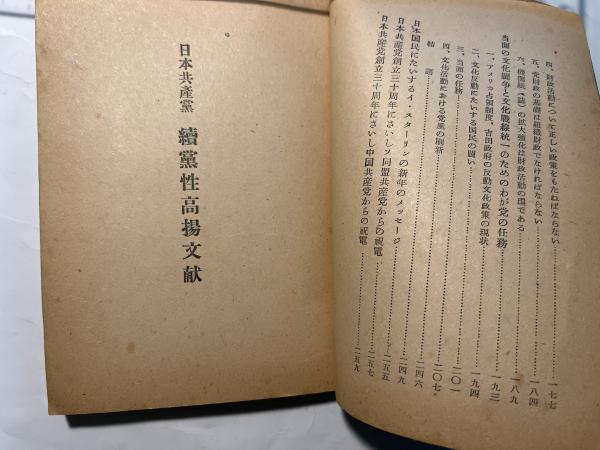 四、財政活動について正しい政策をもたねばならない……一七七
五、党財政の基礎は組織財政でなければならない……一八四
六、機関紙(誌)の拡大強化は財政活動の環である……一八九
当面の文化闘争と文化戦線統一のためのわが党の任務……一九三
一、アメリカ占領制度、吉田政府の反動文化政策の現状……一九四
二、文化反動にたいする国民の闘い……二〇一
三、当面の任務……二〇七
四、文化活動における党風の刷新
結語
日本国民にたいするイ・スターリンの新年のメッセージ……二四六
日本共産党創立三十周年にさいしソ同盟共産党からの祝電……二四九
日本共産党創立三十周年にさいし中国共産党からの祝電……二五五
二五七
二五九
日本共産黨
續黨性高揚文献